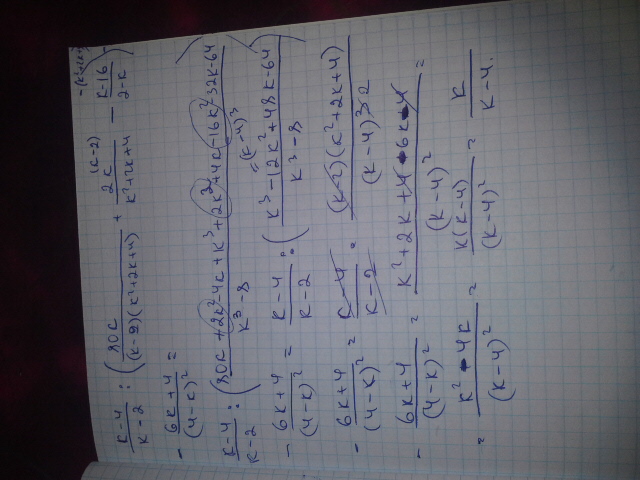 (k-2) -(k²+2k+4)
k-4/k-2 : (80k/((k-2)(k²+2k+4)) + 2k/(k²+2k+4) - k-16/2-k)
- 6k+4/(4-k)² =
k-4/k-2 : (80k+2k²-4k+k³+2k²+4k-16k²-32k-64/k³-8)
=(k-4)³
- 6k+4/(4-k)² = k-4/k-2 : (k³-12k²+48k-64/k³-8)
- 6k+4/(4-k)² = k-4/k-2 · (k-2)(k²+2k+4)/(k-4)³
- 6k+4/(4-k)² = k²+2k+4-6k-4/(k-4)² =
= k²-4k/(k-4)² = k(k-4)/(k-4)² = k/k-4.